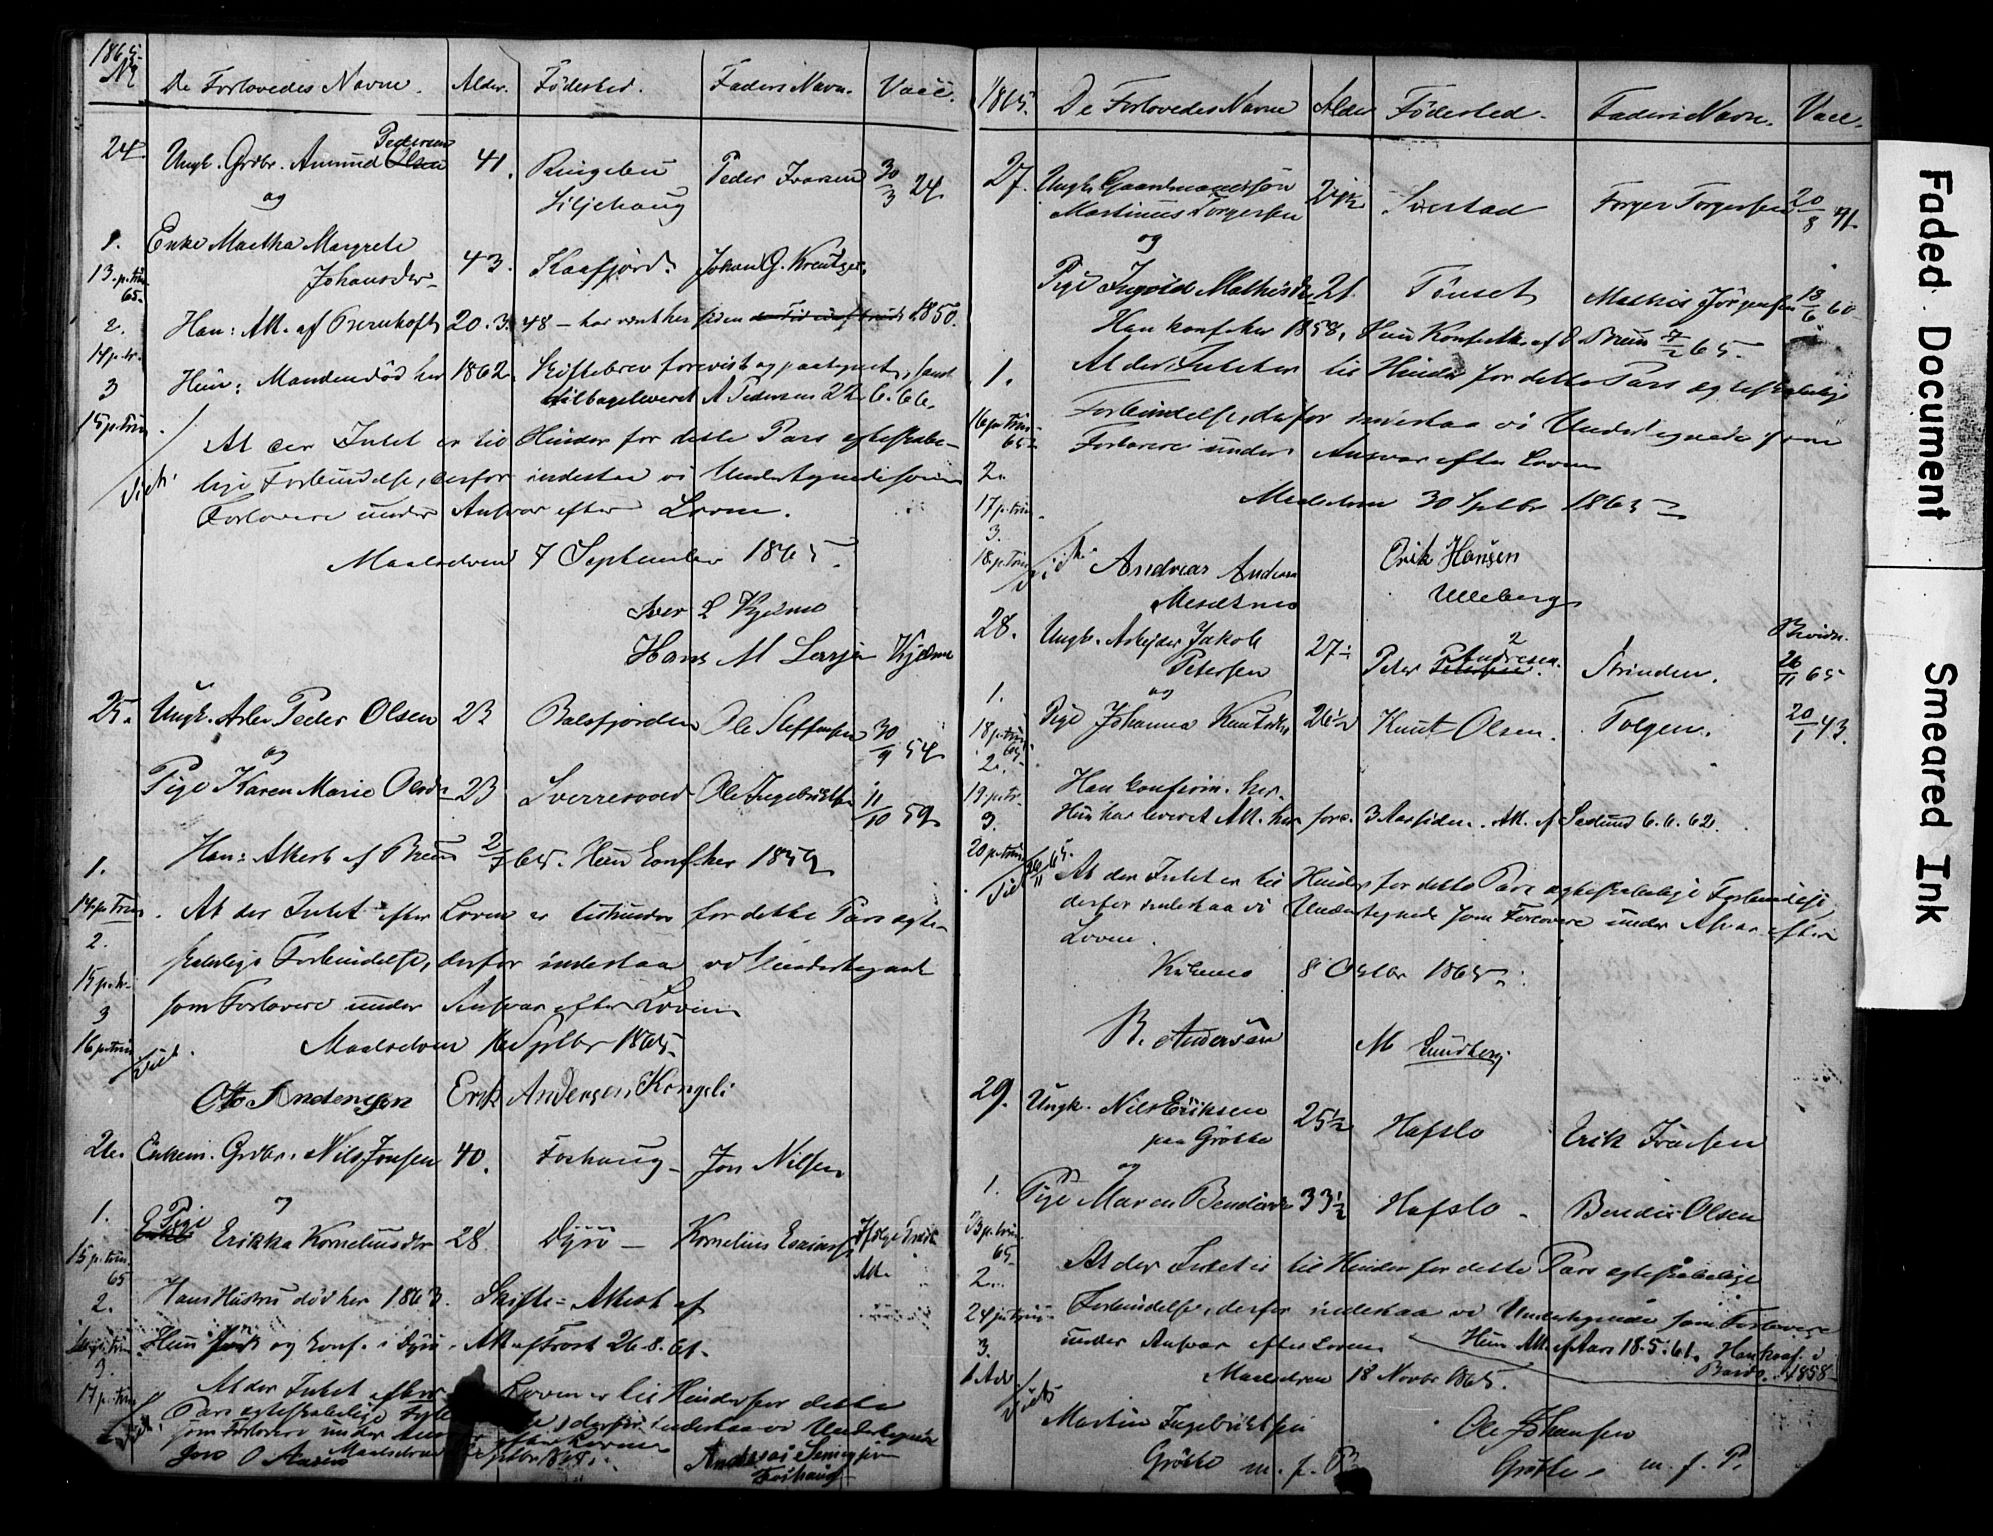 1865.
No De Forlovedes Navne. Alder. Fødested. Faders Navn. Vacc.
24. Ungk. Grdbr. Amund Olsen Pedersen 41. Ringebu Peder Ivarsen 30/3 24
og Liljehaug
1. Enke Martha Margrete
13. p. trin. 65. Johansdr 43. Kaafjord. Johan G. Kreutzer
2. Han: Att. af 20.3.48 – har været her siden 1850.
14 p. tr. Hun: Manden død her 1862. Skiftebrev forevist og paategnet, samt
3 tilbageleveret A Pedersen 22.6.66.
15 p. trin. At der Intet er til Hinder for dette Pars ægteskabe-
lige Forbindelse, derfor indestaa vi Undertegnede som
Viet. Forlovere under Ansvar efter Loven.
Maalselven 7 September 1865.
Iver L Kjelmo
Hans M Larsen Kjelmo
25. Ungk. Arb. Peder Olsen 23 Balsfjorden Ole Steffensen 30/9 54
og
Pige Karen Marie Olsdr 23 Sverresvold Ole Ingebrigtsen 11/10 59
Han: Attest af 2/7 65. Hun konf. her 1859
1.
14. p. trin. At der Intet efter Loven er til Hinder for dette Pars ægte-
2.
skabelige Forbindelse, derfor indestaa vi Undertegnet
15 p. tr.
3 som Forlovere under Ansvar efter Loven
16 p. trin. Maalselven 16 Septbr 1865.
Viet.
Ole Andersen Erik Andersen Kongeli
26. Enkem. Grdbr. Nils Jonsen 40. Foshaug – Jon Nilsen
1. og
Enke Pige Erikka Korneliusdr 28 Dyrø – Kornelius Esaiassen Ifølge
15 p. trin. 65 Att.
2. Hans Hustru død her 1863. Skifte-Attest af
Hun født og konf. i Dyrø. Att. af Frost 26.8.61.
3.
17 p. trin At der Intet efter Loven er til Hinder for dette
Pars ægteskabelige derfor indestaa vi Undertegnede
som Forlovere under efter Loven
Maalselven Septbr 1865.
Jon O Andreas
Foshaug
1865. De Forlovedes Navne Alder Fødested. Faders Navn. Vacc.
27. Ungk. Gaardmandssøn
Martinus Torgersen 24½ Torger Torgersen 20/8 41.
og
Pige Ingeld Mathisdr 21. Tønset Mathis Jørgensen 18/6 60
Han konf. her 1858, Hun Konf. Att. af 7/2 65.
1. At der Intet er til Hinder for dette Pars ægteskabelige
16 p. trin. 65 Forbindelse, derfor indestaa vi Undertegnede som
Forlovere under Ansvar efter Loven
2.
17 p. trin. Maalselven 30 Septbr 1865
3.
18 p. trin Viet. Andreas Anders Erik Hansen
Ulleberg
28. Ungk. Arbejder Jakob
Petersen 27 Peter Petersen Andresen. Strinden. 26/11 65
1. og
18 p. trin. 65 Pige Johanna Knutsdr 26½ Knut Olsen. Tolgen. 20/1 43.
2.
19 p. tr. Han konfirm. her.
3. Hun har leveret Att. her for c. 3 Aar siden. Att. af 6.6.62.
20 p. trin
Viet 26/11 65. At der Intet er til Hinder for dette Pars ægteskabelige Forbindelse
derfor indestaa vi Undertegnede som Forlovere under Ansvar efter
Loven.
8 Octbr 1865.
B. Andersen M Sundberg
29. Ungk. Nils Eriksen
paa Grøtte 25½ Hafslo Erik Iversen
1. og
Pige Maren Bendixdr 33½ Hafslo – Bendix Olsen
23 p. trin. 65
2. At der Intet er til Hinder for dette Pars ægteskabelige
24 p. trin. Forbindelse, derfor indestaa vi Undertegnede som Forlovere
3. under Ansvar efter Loven Hun Att. af Aars 18.5.61. Han konf. i
1 Adv Maalselven 18 Novbr 1865. Bardo. 1858
Viet
Martin Ingebrigtsen Ole Johansen
Grøtte m. f. P. Grøtte m. f. P.
Faded Document
Smeared Ink